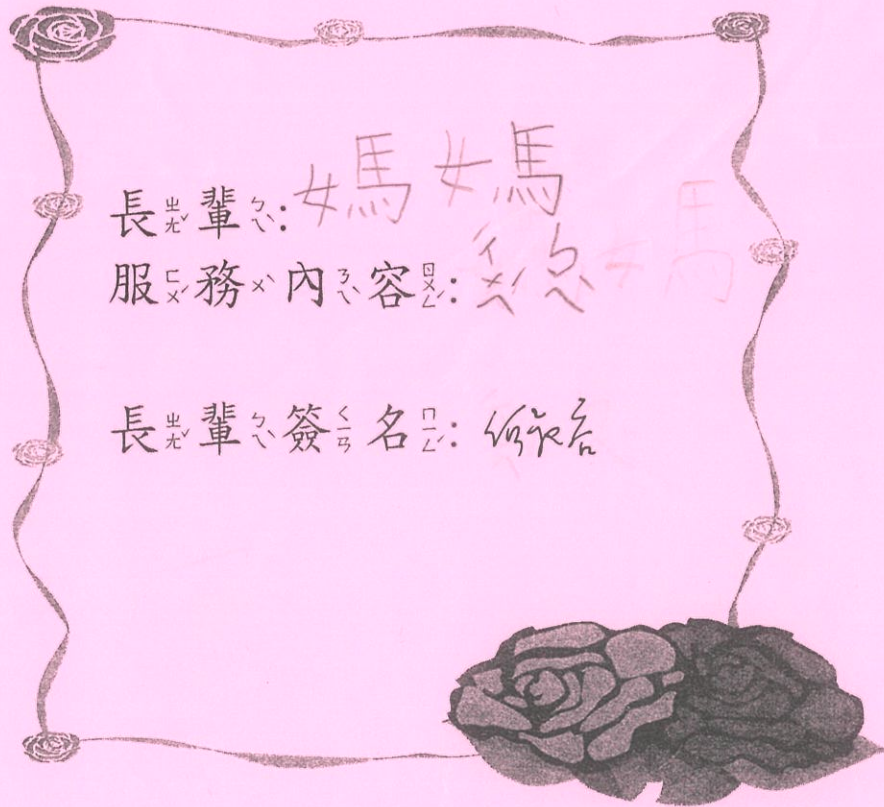 長ㄓㄤˇ輩ㄅㄟˋ:媽媽
服ㄈㄨˊ務ㄨˋ內ㄋㄟˋ容ㄖㄨㄥˊ:ㄔㄨㄟˊ ㄅㄟˋ
長ㄓㄤˇ輩ㄅㄟˋ簽ㄑㄧㄢ名ㄇㄧㄥˊ: